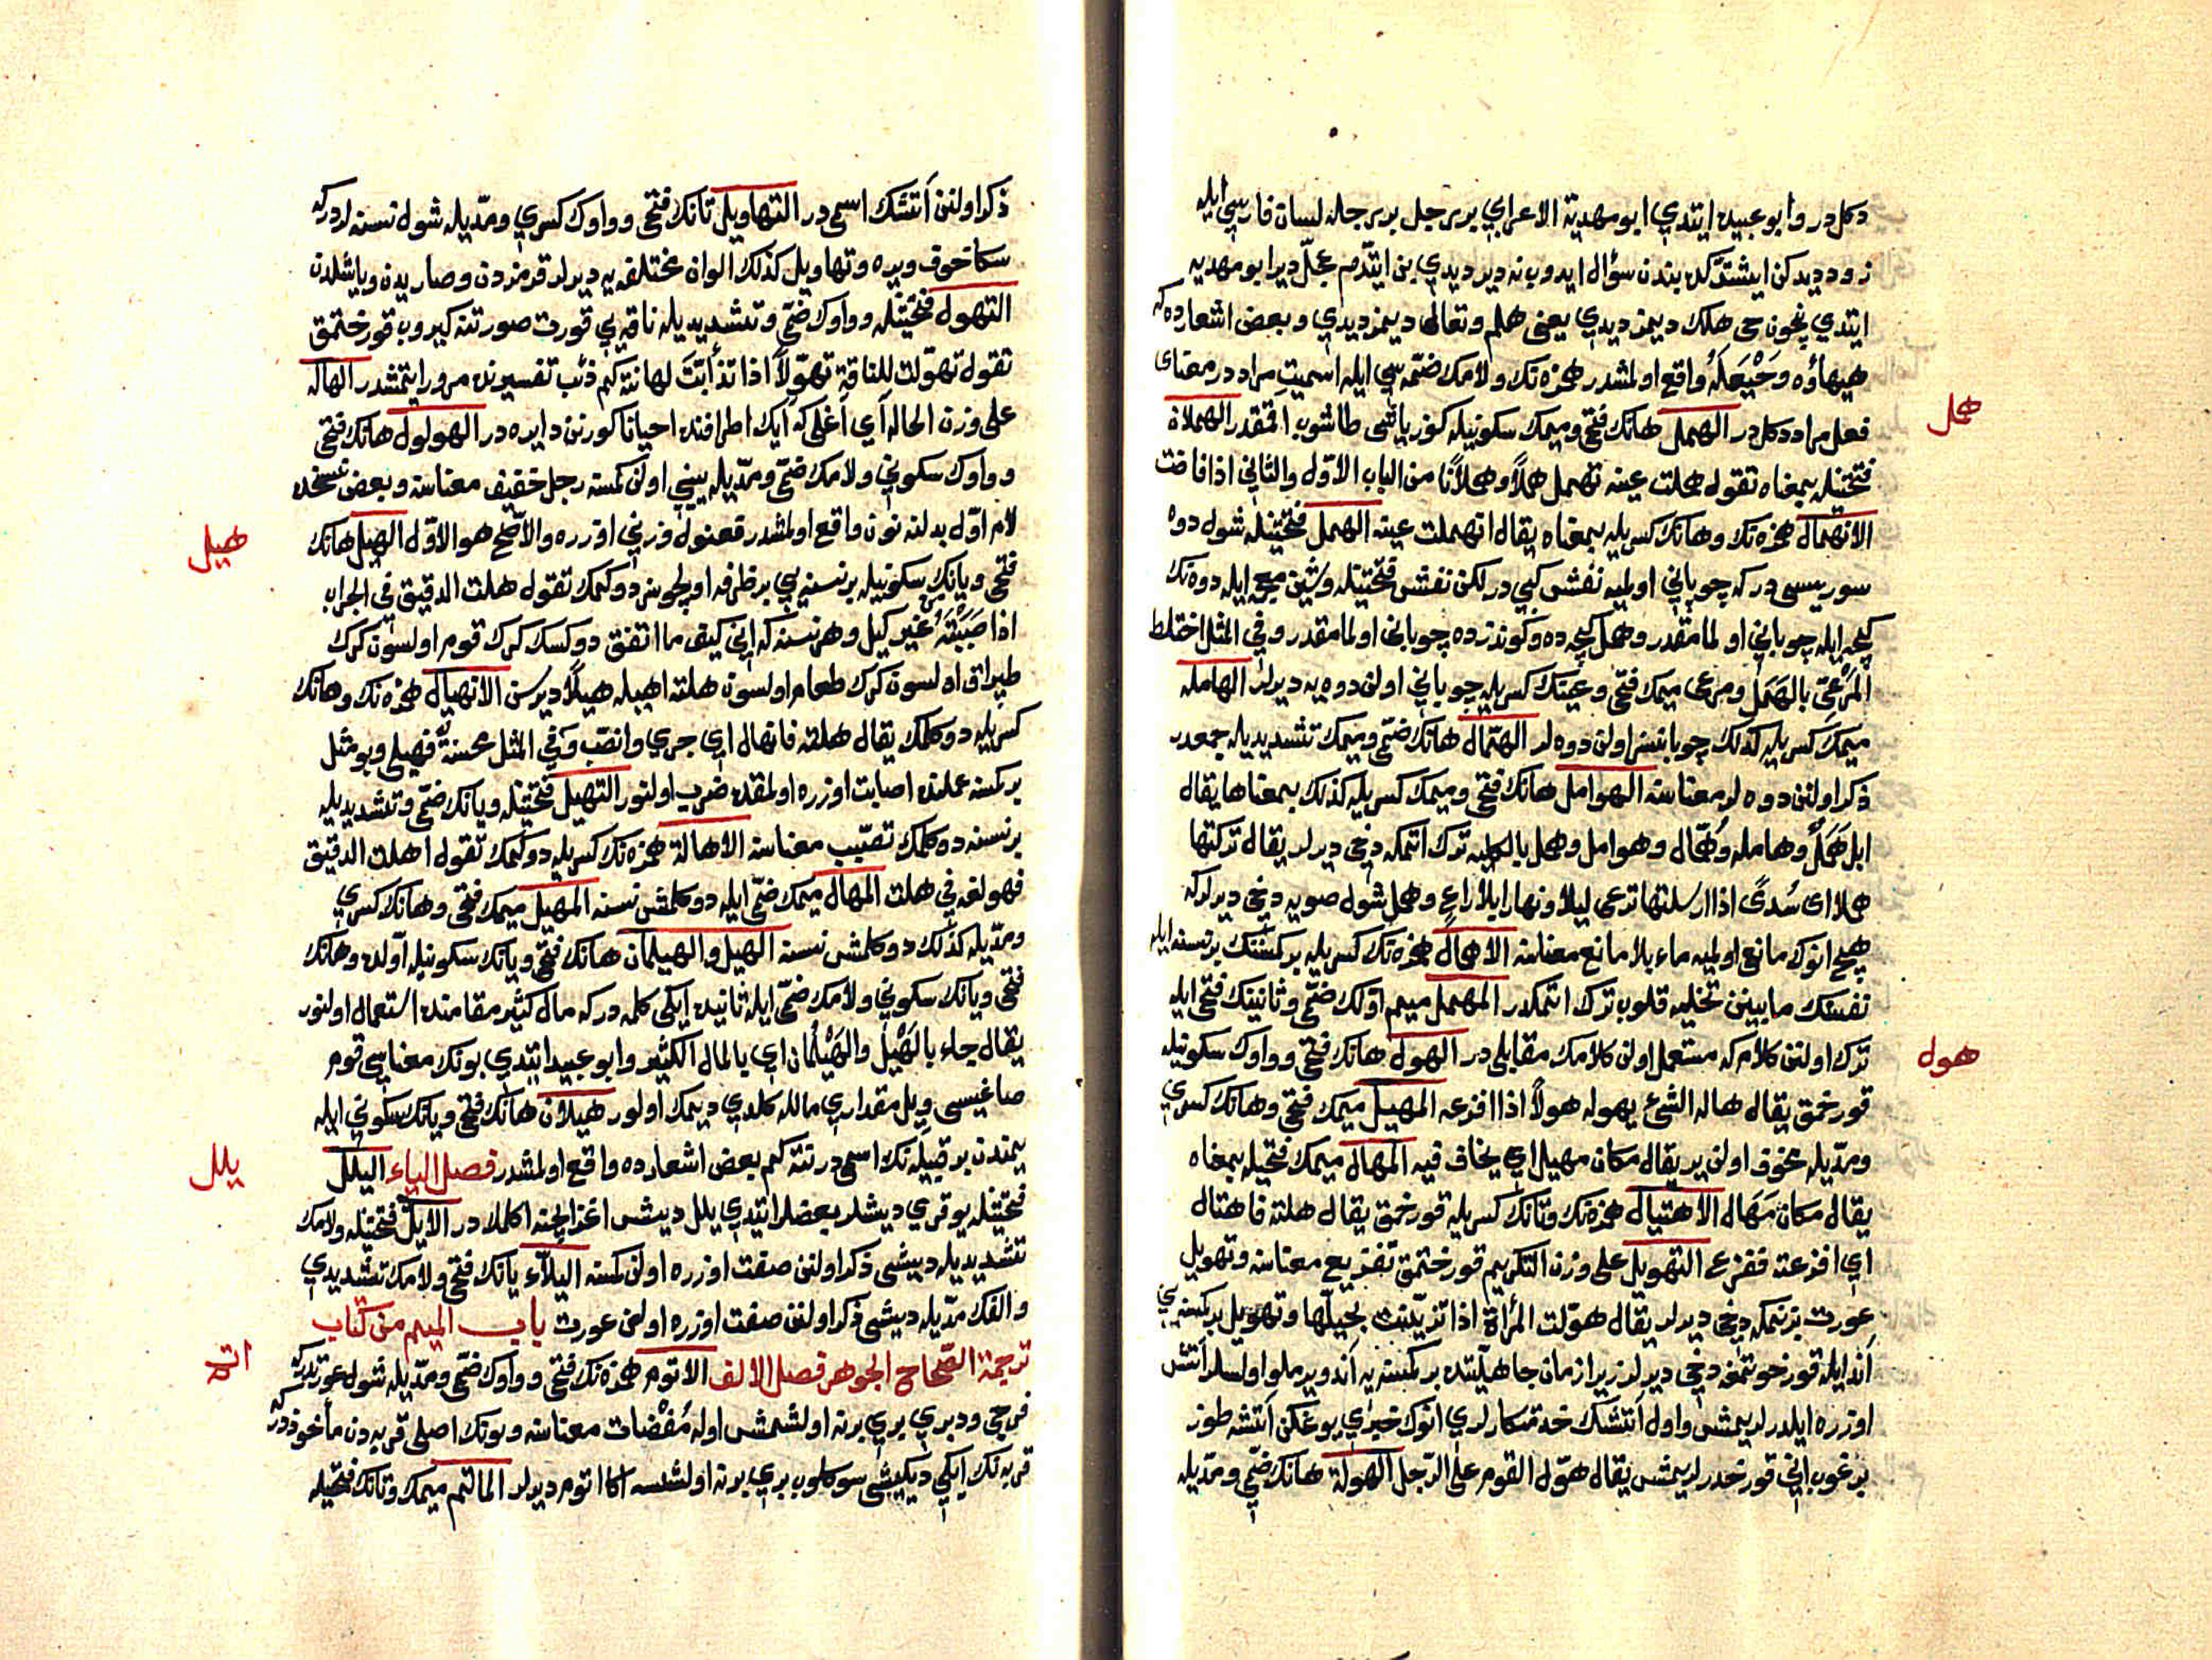 دكلدر وابو عبيده ايتدي ابو مهدية الاعرابي بربر جل بربر جله لسان فارسي ايله
زود ديدكن ايشتدكده بندن سؤال ايدوب نه دير ديدي بن ايتدم عجّل دير ابو مهديه
ايتدي نچون حى هلك ديمز ديدي يعنى هلم وتعالى ديمز ديدي وبعض اشعارده كه
هيهاؤه وحَيْهَلُه واقع اولمشدر همزه نك ولامك ضمّه سي ايله اسميت مراددر معناى
فعل مراد دكلدر الهمل هانك فتحى وميمك سكونيله كوز ياشى طاشوب اقمقدر الهملان
همل
فتحتيله بمعناه تقول هملت عينه تهمل هملاً وهملانًا من الباب الاوّل والثاني اذا فاضت
الانهمال همزه نك وهانك كسريله بمعناه يقال انهملت عينه الهمل فتحتيله شول دوه
سوريسى در كه چوباني اولميه نفش كبي در لكن نفش فتحتيله وشين معجمه ايله دوه نك
كيجه ايله چوباني اولمامقدر وهمل كيجه ده وكوندزده چوباني اولمامقدر وفي المثل اختلط
المرعىّ بالهَمَل ومرعى ميمك فتحى وعينك كسريله چوباني اولن دوه يه ديرلر الهامله
ميمك كسريله كذلك چوبانسز اولن دوه لر الهمّال هانك ضمّى وميمك تشديديله جمعدر
ذكر اولنن دوه لر معناسنه الهوامل هانك فتحى وميمك كسريله كذلك بمعناها يقال
ابل همَلٌ وهامله وهُمّال وهوامل وهمل بالكليه ترك اتمكه دخى ديرلر يقال تركتها
هملا اى سُدىً اذا ارسلتها ترعى ليلا ونهارا بلا راعٍ وهمل شول صويه دخى ديرلر كه
هيچ انوك مانع اولميه ماء بلا مانع معناسنه الاهمال همزه نك كسريله بر كمسنك بر نسنه ايله
نفسنك مابينن تخليه قلوب ترك اتمكدر المهمل ميم اوّلك ضمّى وثانينك فتحى ايله
ترك اولنن كلام كه مستعمل اولن كلامك مقابلى در الهول هانك فتحى وواوك سكونيله
هول
قورخمق يقال هاله الشئ يهوله هولاً اذا افزعه المهيل ميمك فتحى وهانك كسري
ومدّيله مخوف اولن ير يقال مكان مهيل اي يخاف فيه المهال ميمك فتحيله بمعناه
يقال مكان مَهَال الاهتيال همزه نك وتانك كسريله قورخمق يقال هلته فاهتال
اي افزعته ففزع التهويل على وزن التكريم قورختمق تفزيع معناسنه وتهويل
عورت بزنمكه دخى ديرلر يقال هوّلت المرأة اذا تزيّنت بحليّها وتهويل بر كمسنه يي
اند ايله قورخوتمغه دخى ديرلر زيرا زمان جاهليتده بر كمسنه يه اند ويرملو اولسلر آتش
اوزره ايلدرلريمش واول آتشك خدمتكارلري انوك خبري يوغكن آتشه طوز
برغوب اني قورخدرلريمش يقال هوّل القوم على الرّجل الهولة هانك ضمّي ومدّيله
ذكر اولنن آتشك اسمى در التهاويل تانك فتحى وواوك كسري ومدّيله شول نسنه لردر كه
سكا خوف ويره وتهاويل كذلك الوان مختلفه يه ديرلر قرمزدن وصاريدن وياشلدن
التهول فتحتيله وواوك ضمّى وتشديديله ناقه يي قورت صورتنه كيروب قورختمق
تقول تهوّلت للناقة تهوّلاً اذا تذأبّت لها نته كم ذئب تفسيرنده مرور ايتمشدر الهاله
على وزن الحاله آي آغلى كه آيك اطرافنده احيانا كورنن دايره در الهولول هانك فتحى
وواوك سكوني ولامك ضمّى ومدّيله يينى اولن كمسنه رجل خفيف معناسنه وبعض نسخده
لام اوّل بدلنه نون واقع اولمشدر فعنول وزني اوزره والاصحّ هو الاوّل الهيل هانك
هيل
فتحى ويانك سكونيله بر نسنه يي بر ظرفه اولچوسز دوكمك تقول هلت الدقيق في الجراب
اذا صَبَبْتَهُ من غير كيل وهر نسنه كه انى كيف ما اتفق دوكسك كرك قوم اولسون كرك
طپراق اولسون كرك طعام اولسون هلته اهيله هيلاً ديرسن الانهيال همزه نك وهانك
كسريله دوكلمك يقال هلته فانهال اي جرى وانصبّ وفي المثل محسنة فهيلى وبو مثل
بر كمسنه عملنده اصابت اوزره اولمقده ضرب اولنور التهيل فتحتيله ويانك ضمّى وتشديديله
بر نسنه دوكلمك تصبّب معناسنه الاهالة همزه نك كسريله دوكمك تقول اهلت الدقيق
فهو لغة في هلت المهال ميمك ضمّى ايله دوكلمش نسنه المهيل ميمك فتحى وهانك كسري
ومدّيله كذلك دوكلمش نسنه الهيل والهيلمان هانك فتحى ويانك سكونيله آولده وهانك
فتحى ويانك سكوني ولامك ضمّى ايله ثانيده ايكى كلمه در كه مال كثير مقامنده استعمال اولنور
يقال جاء بالهَيْل والهَيْلُمان اي بالمال الكثير وابو عبيد ايتدي بونك معناسي قوم
صاغيسى ويل مقداري مالله كلدي ديمك اولور هيلان هانك فتحى ويانك سكوني ايله
يمندن بر قبيله نك اسمى در نته كم بعض اشعارده واقع اولمشدر فصل الياء اليلل
يلل
فتحتيله يوقري ديشلر بعضلر ايتدي يلل ديش اغز ايچنه اكلمكدر الايلّ فتحتيله ولامك
تشديديله ديشى ذكر اولنن صفت اوزره اولن كمسنه اليلّاء يانك فتحى ولامك تشديدي
والفك مدّيله ديشى ذكر اولنن صفت اوزره اولن عورت باب الميم من كتاب
ترجمة الصّحاح الجوهر فصل الالف الاتوم همزه نك فتحى وواوك ضمّى ومدّيله شول عورتدر كه
اتم
فرجى ودبري بري برنه اولشمش اوله مُفْضات معناسنه وبونك اصلى قربه دن مأخوذدر كه
قربه نك ايكى ديكيشى سوكلوب بري برنه اولشسه اكا اتوم ديرلر المأتم ميمك وتانك فتحيله